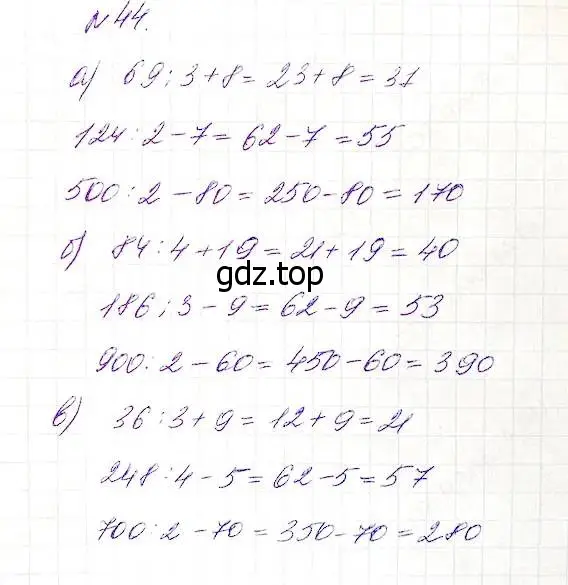 №44.
а) 69:3+8=23+8=31
124:2-7=62-7=55
500:2-80=250-80=170
б) 84:4+19=21+19=40
gdz.top
186:3-9=62-9=53
900:2-60=450-60=390
в) 36:3+9=12+9=21
248:4-5=62-5=57
700:2-70=350-70=280